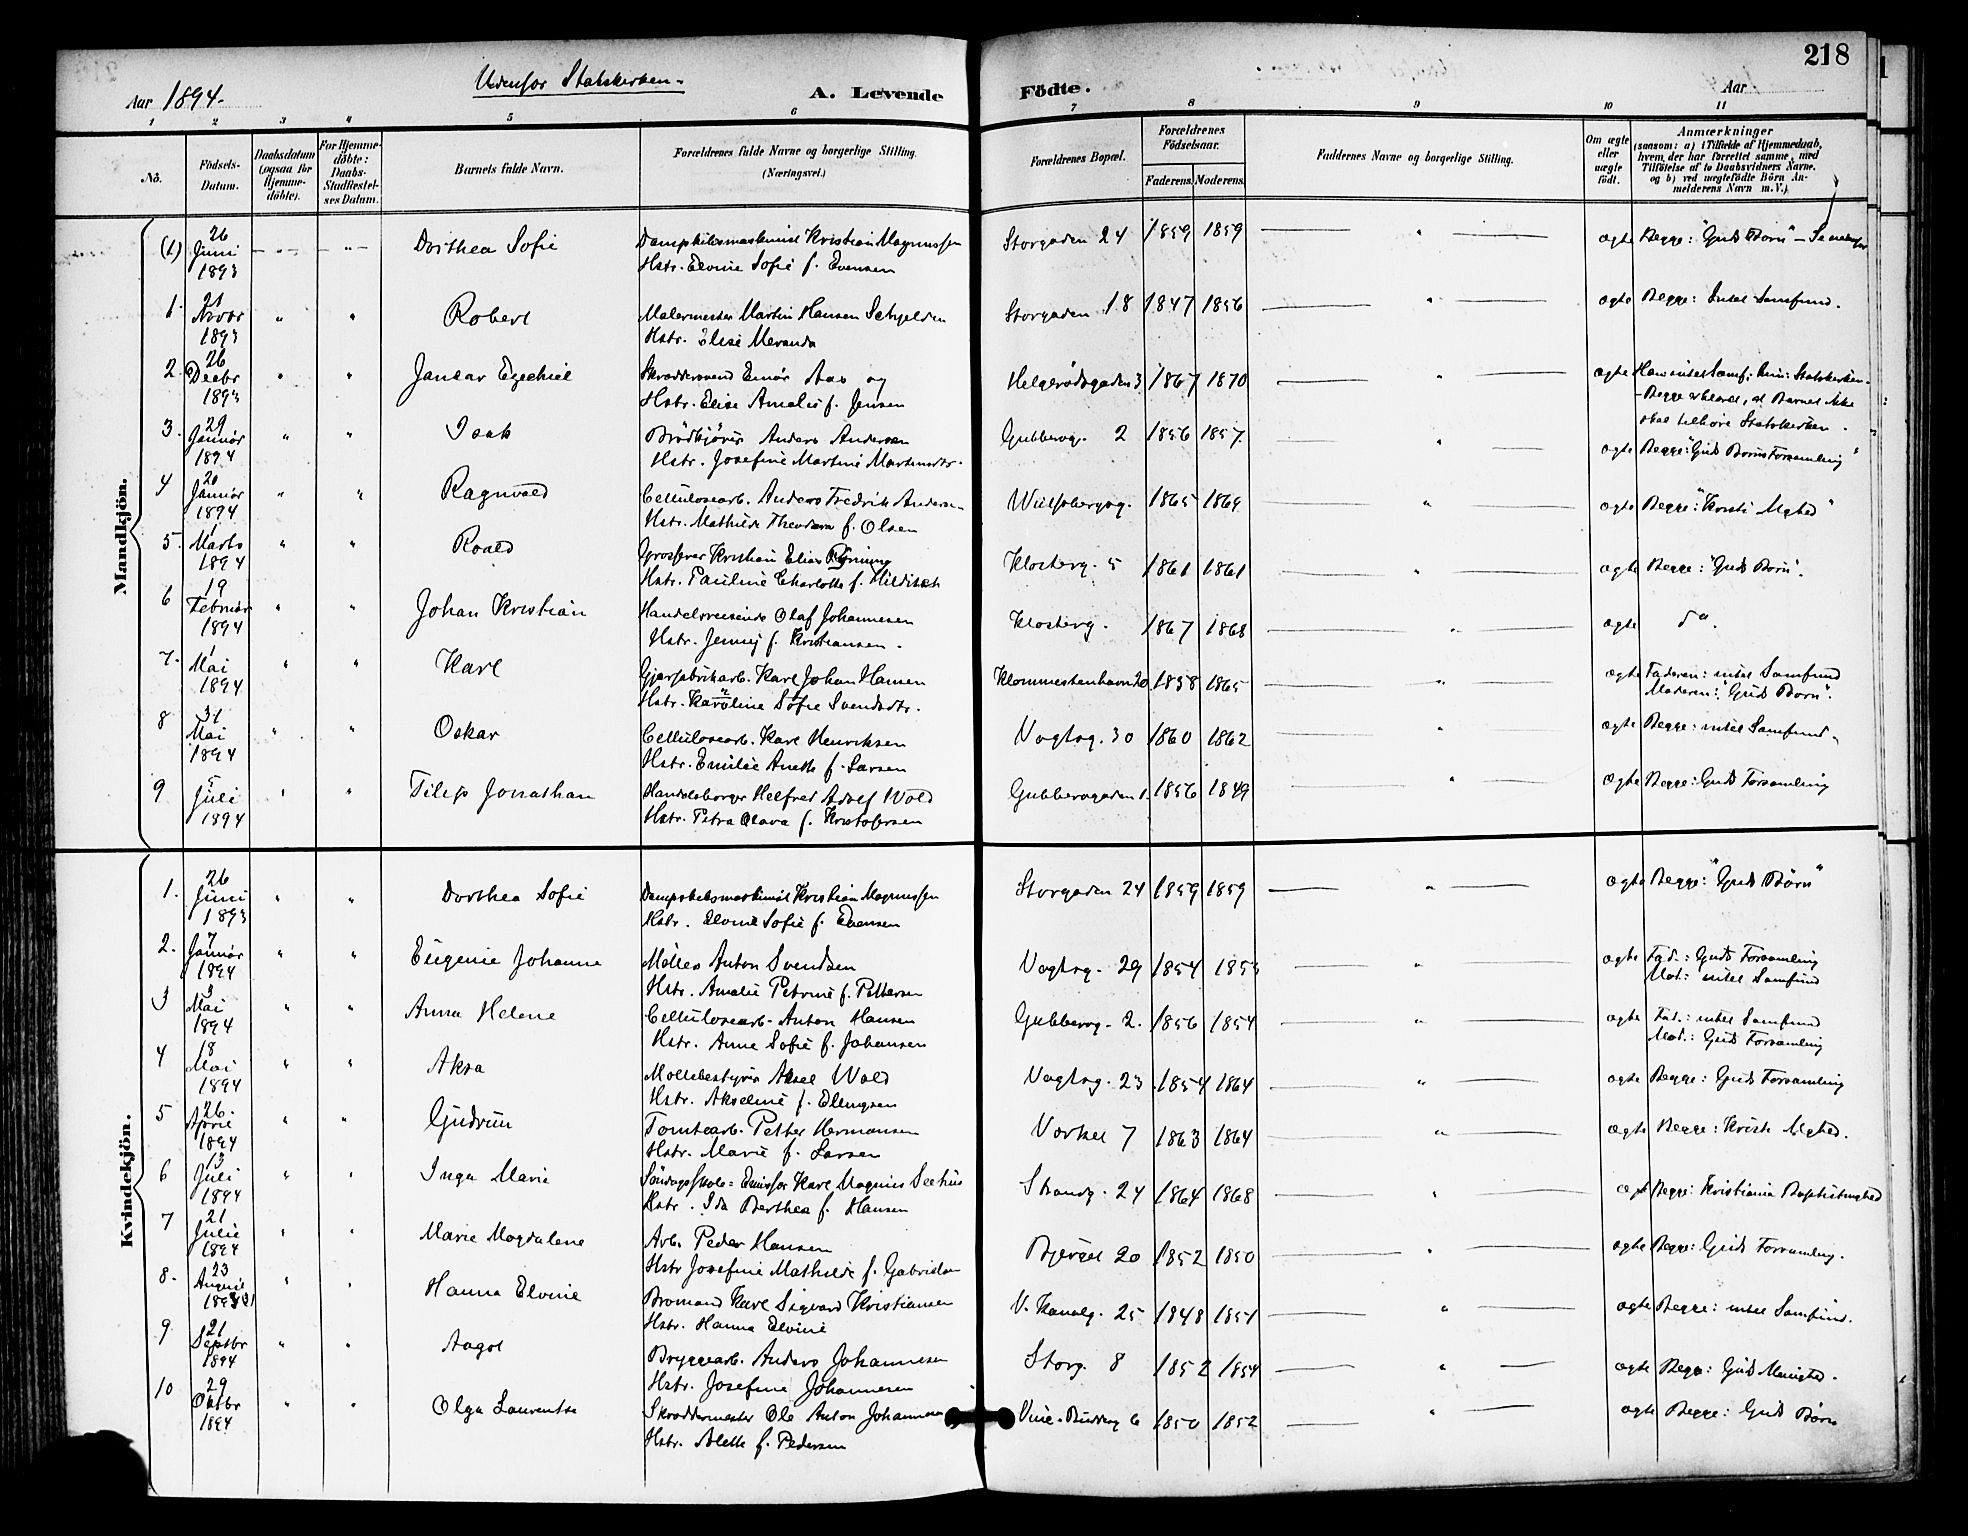 218
Aar 1894.
Udenfor Statskirken.
A. Levende Födte.
Aar
1 2 3 4 5 6 7 8 9 10 11
No.
Födsels-Datum.
Daabsdatum (ogsaa for Hjemmedöbte).
For Hjemmedöbte: Daabs-Stadfæstelses Datum.
Barnets fulde Navn.
Forældrenes fulde Navne og borgerlige Stilling. (Næringsvei.)
Forældrenes Bopæl.
Forældrenes Födselsaar.
Faderens. Moderens.
Faddernes Navne og borgerlige Stilling.
Om ægte eller uægte födt.
Anmærkninger (saasom: a) i Tilfælde af Hjemmedaab, hvem der har forrettet samme, med Tilföielse af to Daabsvidners Navne, og b) ved uægtefödte Börn Anmelderens Navn m. V.)
Mandkjön.
(1) 26 Juni 1893 Dorthea Sofie Dampskibsmaskinist Kristian Magnussen Storgaden 24 1859 1859 ægte Begge: "Guds Børn" - Se nedenfor
Hstr. Elvine Sofie f. Evensen
1. 21 Novbr 1893 " " Robert Malermester Martin Hansen Schjelden Storgaden 18 1847 1856 " ægte Begge: Intet Samfund.
Hstr. Elise Meranda
2. 26 Decbr 1893 " " Ezechiel Skræddersvend Einar Aas og Helgerødsgaden 3 1867 1870 " ægte Han intet Samf; hun: Statskirken -
Hstr. Elise Amalie f. Jensen - Begge erklæret, at Barnet ikke
skal tilhöre Statskirken.
3. 29 Januar 1894 " " Isak Brödkjörer Anders Andersen Gubberog. 2 1856 1857 " ægte Begge: "Guds Børns Forsamling"
Hstr. Josefine Martine Martinsdtr.
4 20 Januar 1894 " " Ragnvald Cellulosearb. Anders Fredrik Andersen Wulfsbergsg. 1865 1869 " ægte Begge: "Kristi Mghed"
Hstr. Mathilde Theodora f. Olsen
5. 1 Marts 1894 " " Roald Grosserer Kristian Elias Klosterg. 5 1861 1861 " ægte Begge: "Guds Børn".
Hstr. Pauline Charlotte f. Hilditch
6 19 Februar 1894 " " Johan Kristian Handelsreisende Olaf Johannesen Klosterg. 1867 1868 " ægte do.
Hstr. Jenny f. Kristiansen.
7. 1 Mai 1894 " " Karl Gjærfabrikarb. Karl Johan Hansen 20 1858 1865 " ægte Faderen: intet Samfund
Hstr. Karoline Sofie Svendsdtr. Moderen: "Guds Børn".
8 31 Mai 1894 " " Oskar Cellulosearb. Karl Henriksen Vogtsg. 30 1860 1862 " ægte Begge: intet Samfund.
Hstr. Emilie Anette f. Larsen
9 5 Juli 1894 " " Filip Jonathan Handelsborger Helfred Adolf Wold Gubberogaden 1. 1856 1849 " ægte Begge: Guds Forsamling
Hstr. Petra Olava f. Kristofersen
Kvindekjön.
1. 26 Juni 1893 " " Dorthea Sofie Dampskibsmaskinist Kristian Magnussen Storgaden 24 1859 1859 " ægte Begge: "Guds Børn"
Hstr. Elvine Sofie f. Evensen
2. 7 Januar 1894 " " Eugenie Johanne Møller Anton Svendsen Vogtsg. 29 1854 1853 " ægte Fad.: Guds Forsamling
Hstr. Amalie Petrine f. Pettersen Mod: intet Samfund
3 3 Mai 1894 " " Anna Helene Cellulosearb. Anton Hansen Gubberog. 2. 1856 1854 " ægte Fad.: intet Samfund
Hstr. Anne Sofie f. Johansen Mod.: Guds Forsamling
4 18 Mai 1894 " " Aksa Møllebestyrer Aksel Wold Vogtsg. 23 1854 1864 " ægte Begge: Guds Forsamling
Hstr. Akseline f. Ellingsen
5 26. April 1894 " " Gudrun Tomtearb. Petter Hermansen Værket 7 1863 1864 " ægte Begge: Kristi Mghed.
Hstr. Marie f. Larsen
6 13 Juli 1894 " " Inga Marie Söndagsskole-Emissær Karl Magnus Strandg. 24 1864 1868 " ægte Begge: Kristiania Baptistmghed
Hstr. Ida Berthea f. Hansen
7 21 Juli 1894 " " Marie Magdalene Arb. Peder Hansen Bjerget 20 1852 1850 " ægte Begge: Guds Forsamling.
Hstr Josefine Mathilde f. Gabrielsen
8. 23 August " " Hanna Elvine Bromand Karl Sigvard Kristiansen V. Kanalg. 25 1848 1851 " ægte Begge: intet Samfund.
Hstr. Hanna Elvine
9 21 Septbr 1894 " " Aagot Bryggearb. Anders Johannesen Storg. 8 1852 1854 " ægte Begge: Guds Menighed.
Hstr. Josefine Johannesen
10 29 Oktbr 1894 " " Olga Laurentse Skræddermester Ole Anton Johannesen 6 1850 1852 " ægte Begge: Guds Børn
Hstr. Alette f. Pedersen